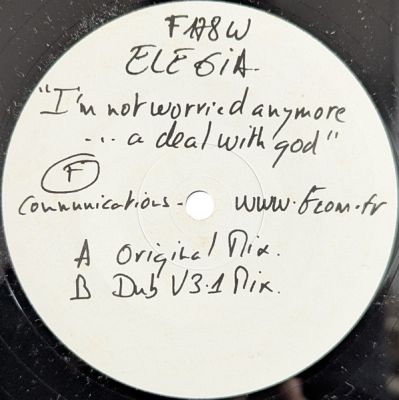 F178W
ELEGIA.
"I'm not worried anymore
... a deal with god"
F
Communications - www.fcom.fr
A Original Mix.
B Dub V3.1 Mix.